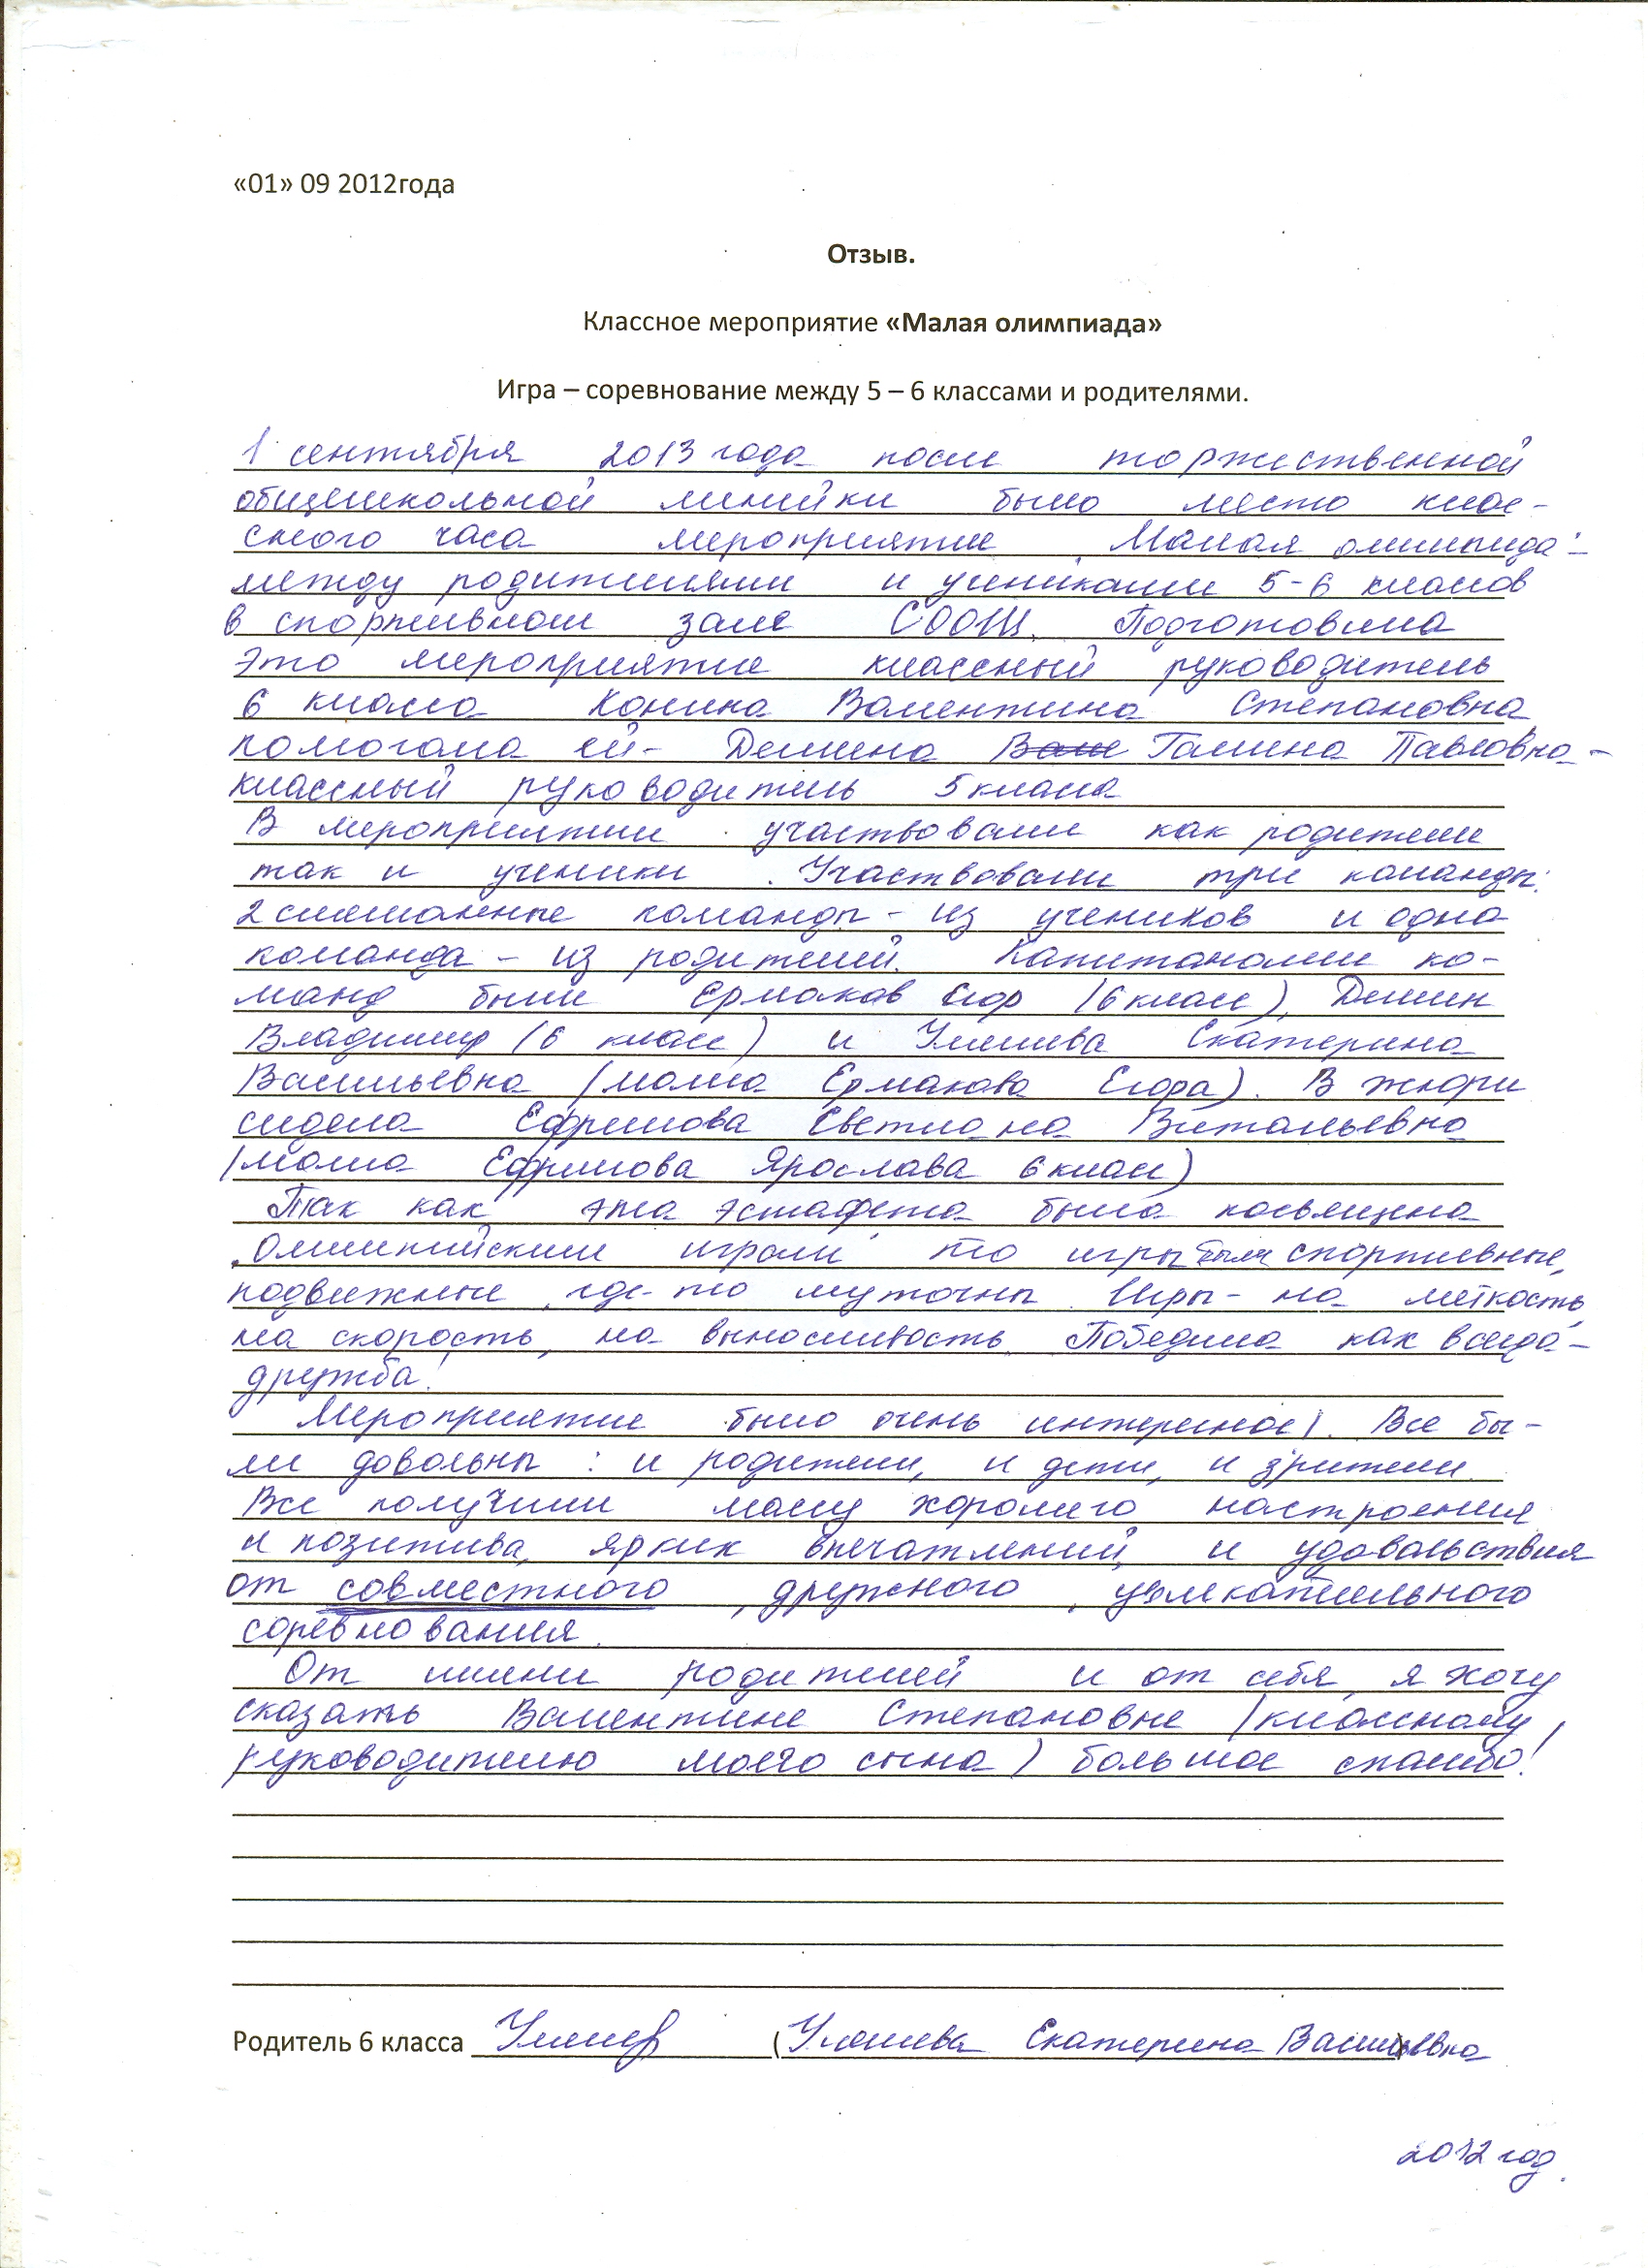 «01» 09 2012года
Отзыв.
Классное мероприятие «Малая олимпиада»
Игра – соревнование между 5 – 6 классами и родителями.
1 сентября 2013 года после торжественной
общешкольной линейки было место клас-
сного часа мероприятие „Малая олимпиада"-
между родителями и учениками 5-6 классов
в спортивном зале СООШ. Подготовила
это мероприятие классный руководитель
6 класса Конина Валентина Степановна
помогала ей- Демина Галина Павловна-
классный руководитель 5 класса
В мероприятии участвовали как родители
так и ученики. Участвовали три команды:
2 смешанные команды - из учеников и одна
команда - из родителей. Капитанами ко-
манд были Ермаков Егор (6 класс), Демин
Владимир (6 класс) и Екатерина
Васильевна (мама Ермакова Егора). В жюри
сидела Ефремова Светлана Витальевна
(мама Ефримова Ярослава 6 класс)
Так как эта эстафета была посвящена
„Олимпийским играм" то игры были спортивные,
подвижные, где-то шуточны. Игры- на меткость,
на скорость, на выносливость. Победила как всегда-
дружба!
Мероприятие было очень интересное). Все бы-
ли довольны: и родители, и дети, и зрители.
Все получили массу хорошего настроения
и позитива, ярких впечатлений и удовольствия
от совместного, дружного, увлекательного
соревнования.
От имени родителей и от себя, я хочу
сказать Валентине Степановне (классному
руководителю моего сына) большое спасибо!
Родитель 6 класса ( Екатерина Васильевна
2012 год.